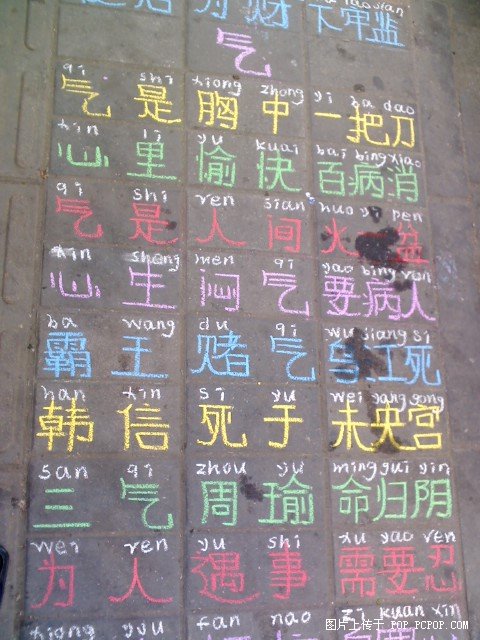 为财 下牢监
气
qi shi xiong zhong yi ba dao
气是胸中一把刀
xin li yu kuai bai bing xiao
心里愉快百病消
qi shi ren jian huo pen
气是人间火盆
xin sheng men qi yao bing ren
心生闷气要病人
ba wang du qi wu jiang si
霸王赌气乌江死
han xin si yu wei yang gong
韩信死于未央宫
san qi zhou yu ming gui yin
三气周瑜命归阴
wei ren yu shi xu yao ren
为人遇事需要忍
fan nao zi kuan xin
图片上传于 POP.PCPOP.COM